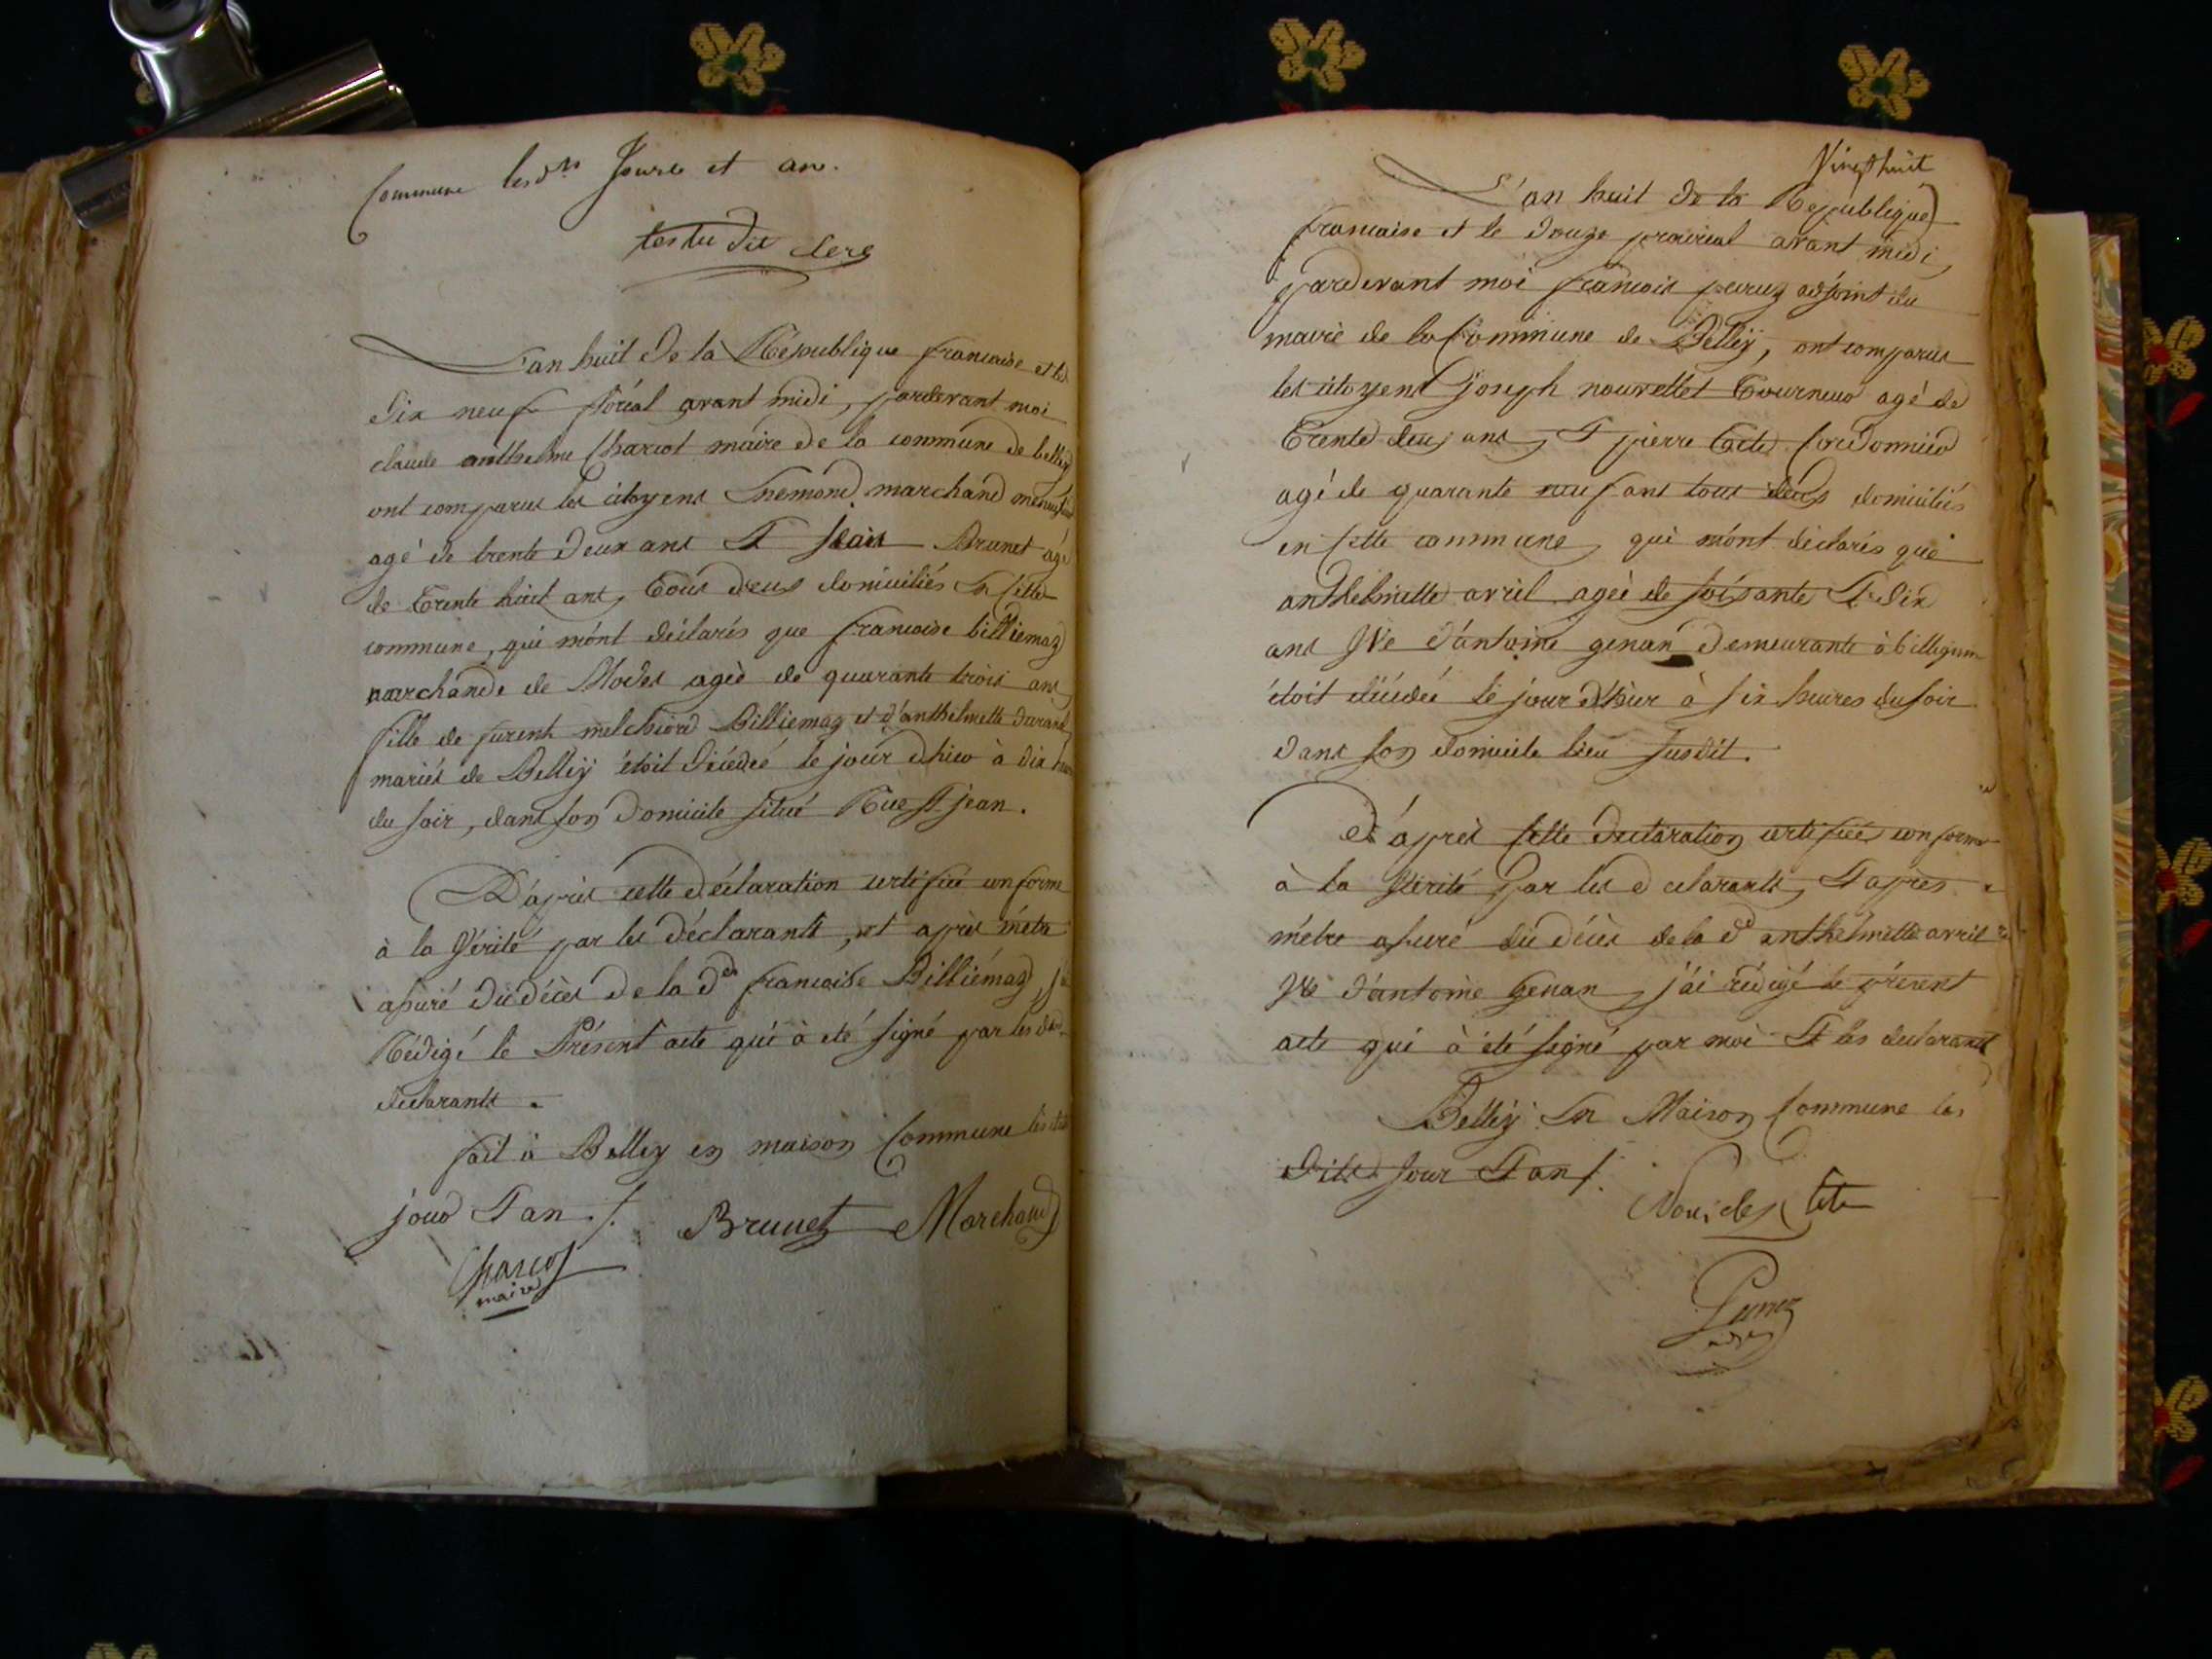 Commune lesdts Jours et an.
testu dit clerc
L'an huit de la République francaise et le
dix neuf floréal avant midi, pardevant moi
claude anthelme Charcot maire de la commune de belley
ont comparus les citoyens Enemond marchand
agé de trente deux ans & Jean Brunet agé
de Trente huit ans, Tous deux domiciliés En Cette
commune, qui m'ont déclarés que francoise billiemaz
marchande de Modes ageè de quarante trois ans
fille de furent melchiord Billiemaz et d'anthelmette
mariés de Belley étoit décédeé le jour d'hier à dix
du soir, dans son Domicile situé Rue St jean.
D'après cette déclaration certifiée conforme
à la Vérité par les déclarants, et après m'etre
assuré du décès de la de francoise Billiémaz,
Rédigé le Présent acte qui à eté signé par les
declarants.
fait à Belley en maison Commune
jour & an ./.
Brunet Marchand
Charcot
maire
Vingt huit
L'an huit de la République
francaise et le douze prairial avant midi,
pardevant moi francois peruz adjoint du
maire de la Commune de Belley, ont comparus
les citoyens Joseph nouvellet Tourneur agé de
Trente deux ans, & pierre tete Cordonnier
agé de quarante neuf ans tous deux domiciliés
en Cette commune, qui m'ont déclarés que
anthelmette avril ageè de soixante & dix
ans Ve d'antoine genan demeurante à billignin
étoit décédeé le jour d'hier à six heures du soir
dans son domicile lieu susdit.
D'après Cette déclaration certifiée conforme
à la Vérité par les declarants, & après
m'etre assuré du décès de la de anthelmette avril
Ve d'antoine genan, j'ai rédigé le présent
acte qui à été signé par moi & les declarants
Belley En Maison Commune les
dits Jour & an ./.
tete
Peruz